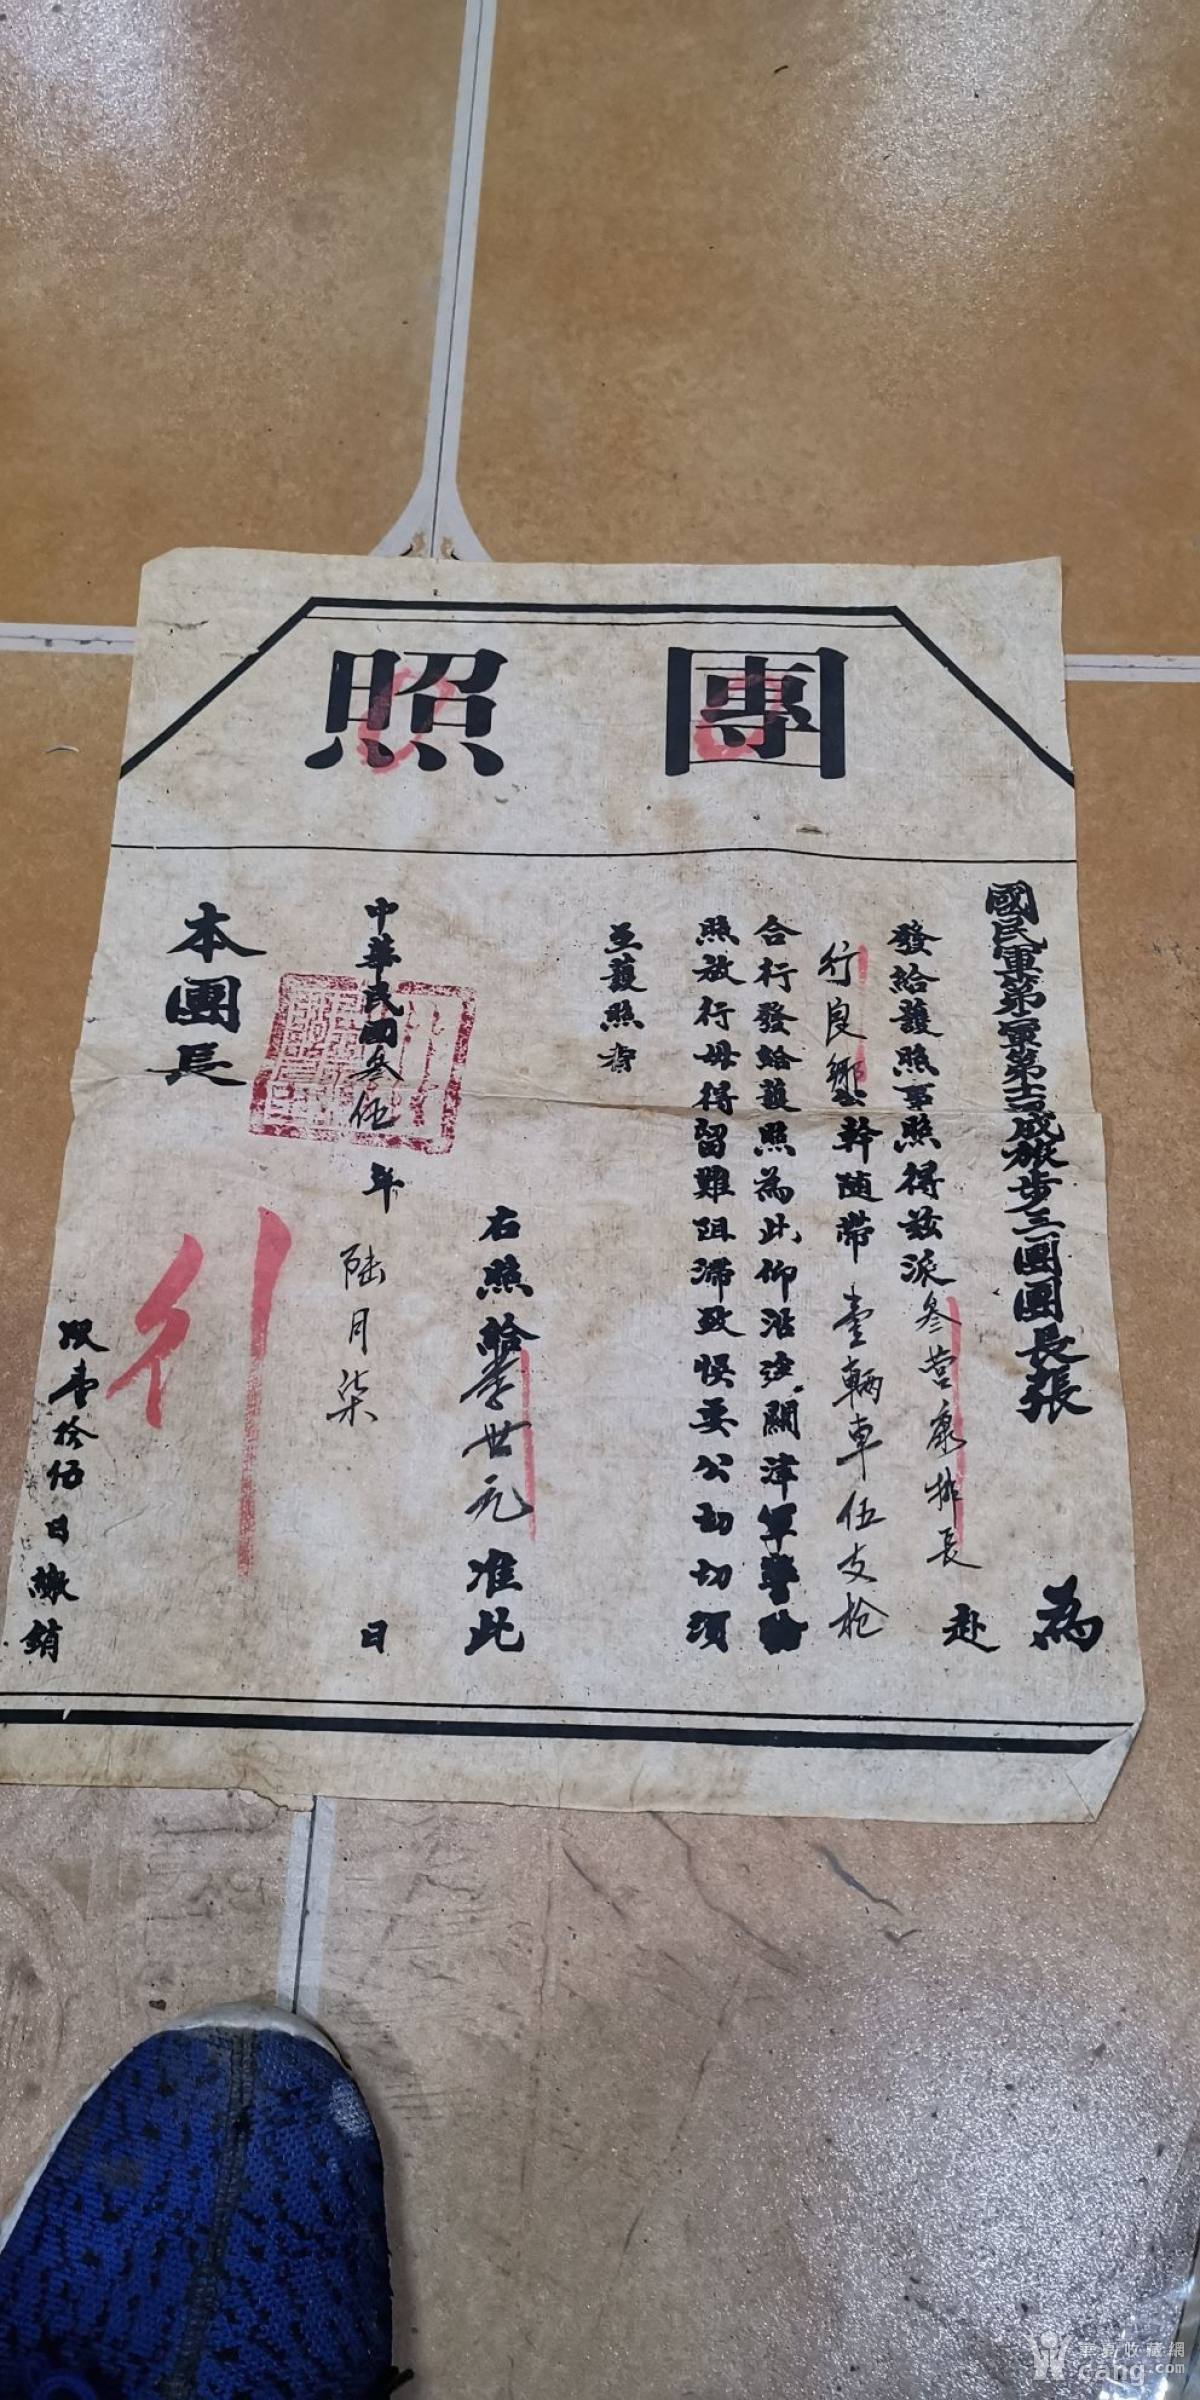 團照
國民軍第軍第十三戍旅步三團團長張 為
發給護照事照得茲派叁营康排長 赴
行良鄉公幹隨帶壹輛車伍支枪
合行發給護照為此仰沿途關津軍警驗
照放行毋得留難阻滯致悞要公切切須
至護照者
右照給李世元准此
中華民國叁伍年陸月柒日
本團長
行
限壹拾伍日繳銷
華夏收藏網
cang.com